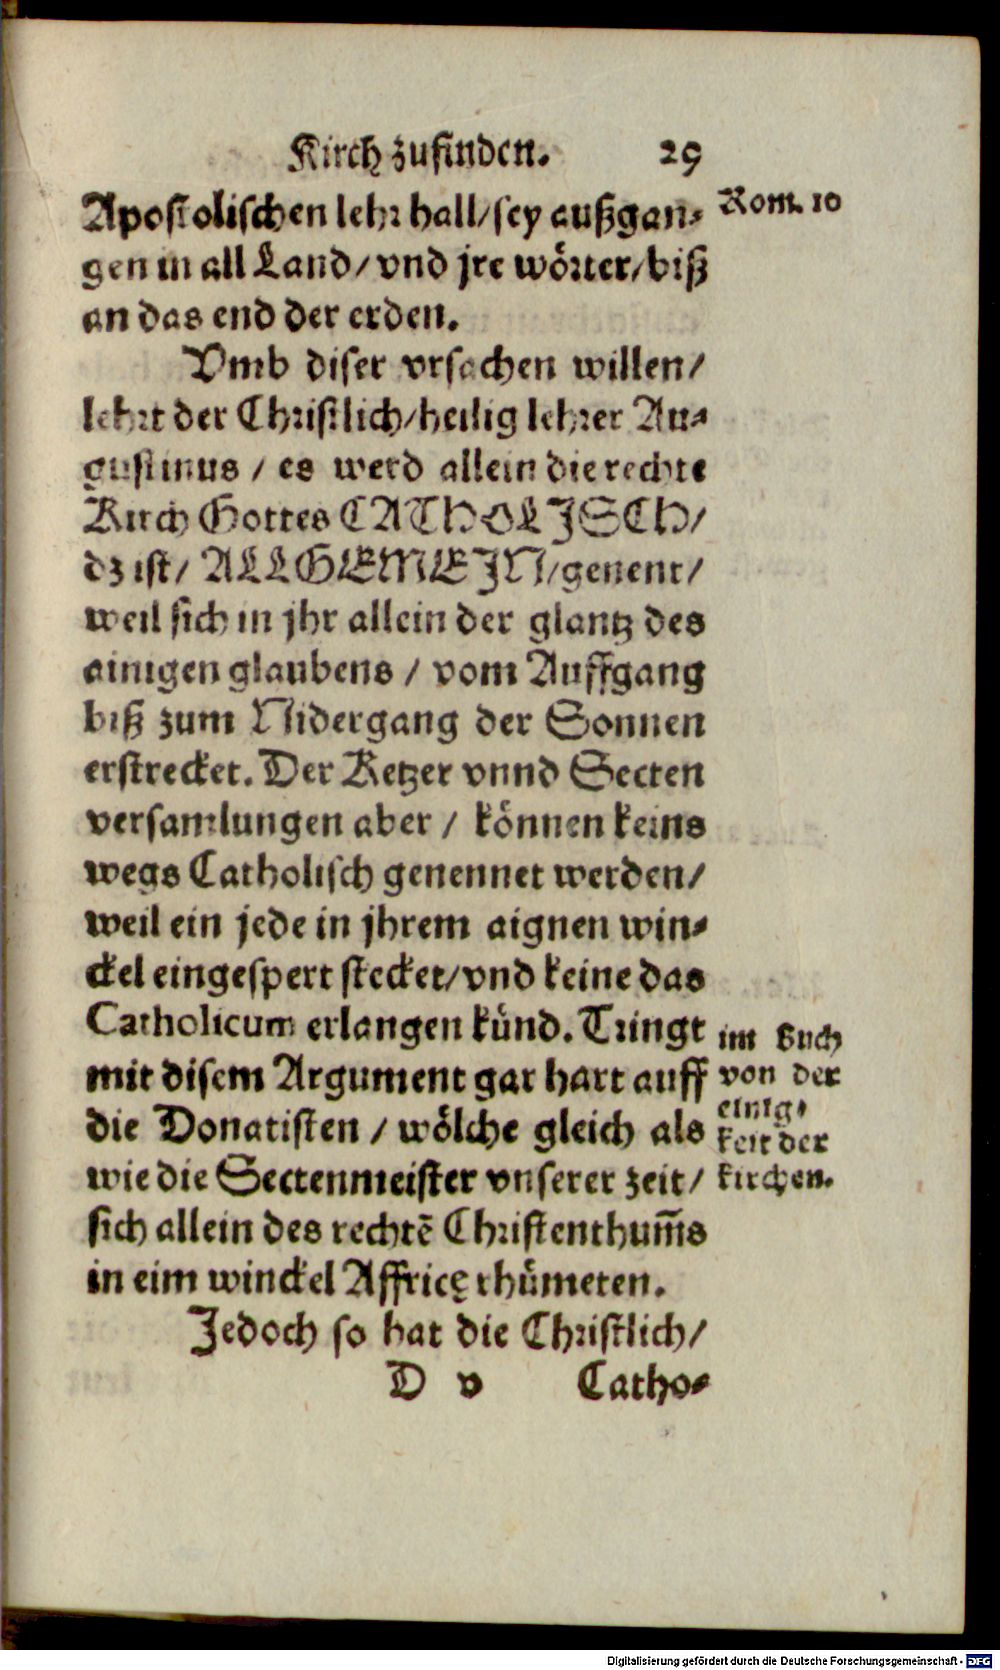 Kirch zufinden. 29
Apostolischen lehr hall/sey außgan-
Rom. 10
gen in all Land/vnd jre wörter/biß
an das end der erden.
Vmb diser vrsachen willen/
lehrt der Christlich/heilig lehrer Au-
gustinus / es werd allein die rechte
Kirch Gottes CATHOLJSCH/
dz ist/ ALLGEMEJN/genent/
weil sich in jhr allein der glantz des
ainigen glaubens / vom Auffgang
biß zum Nidergang der Sonnen
erstrecket. Der Ketzer vnnd Secten
versamlungen aber / können keins
wegs Catholisch genennet werden/
weil ein jede in jhrem aignen win-
ckel eingespert stecket/vnd keine das
Catholicum erlangen künd. Tringt
mit disem Argument gar hart auff
die Donatisten / wölche gleich als
wie die Sectenmeister vnserer zeit/
sich allein des rechtē Christenthum̄s
in eim winckel Affricę rhümeten.
im Buch
von der
einig-
keit der
kirchen.
Jedoch so hat die Christlich/
D v Catho-
Digitalisierung gefördert durch die Deutsche Forschungsgemeinschaft - DFG